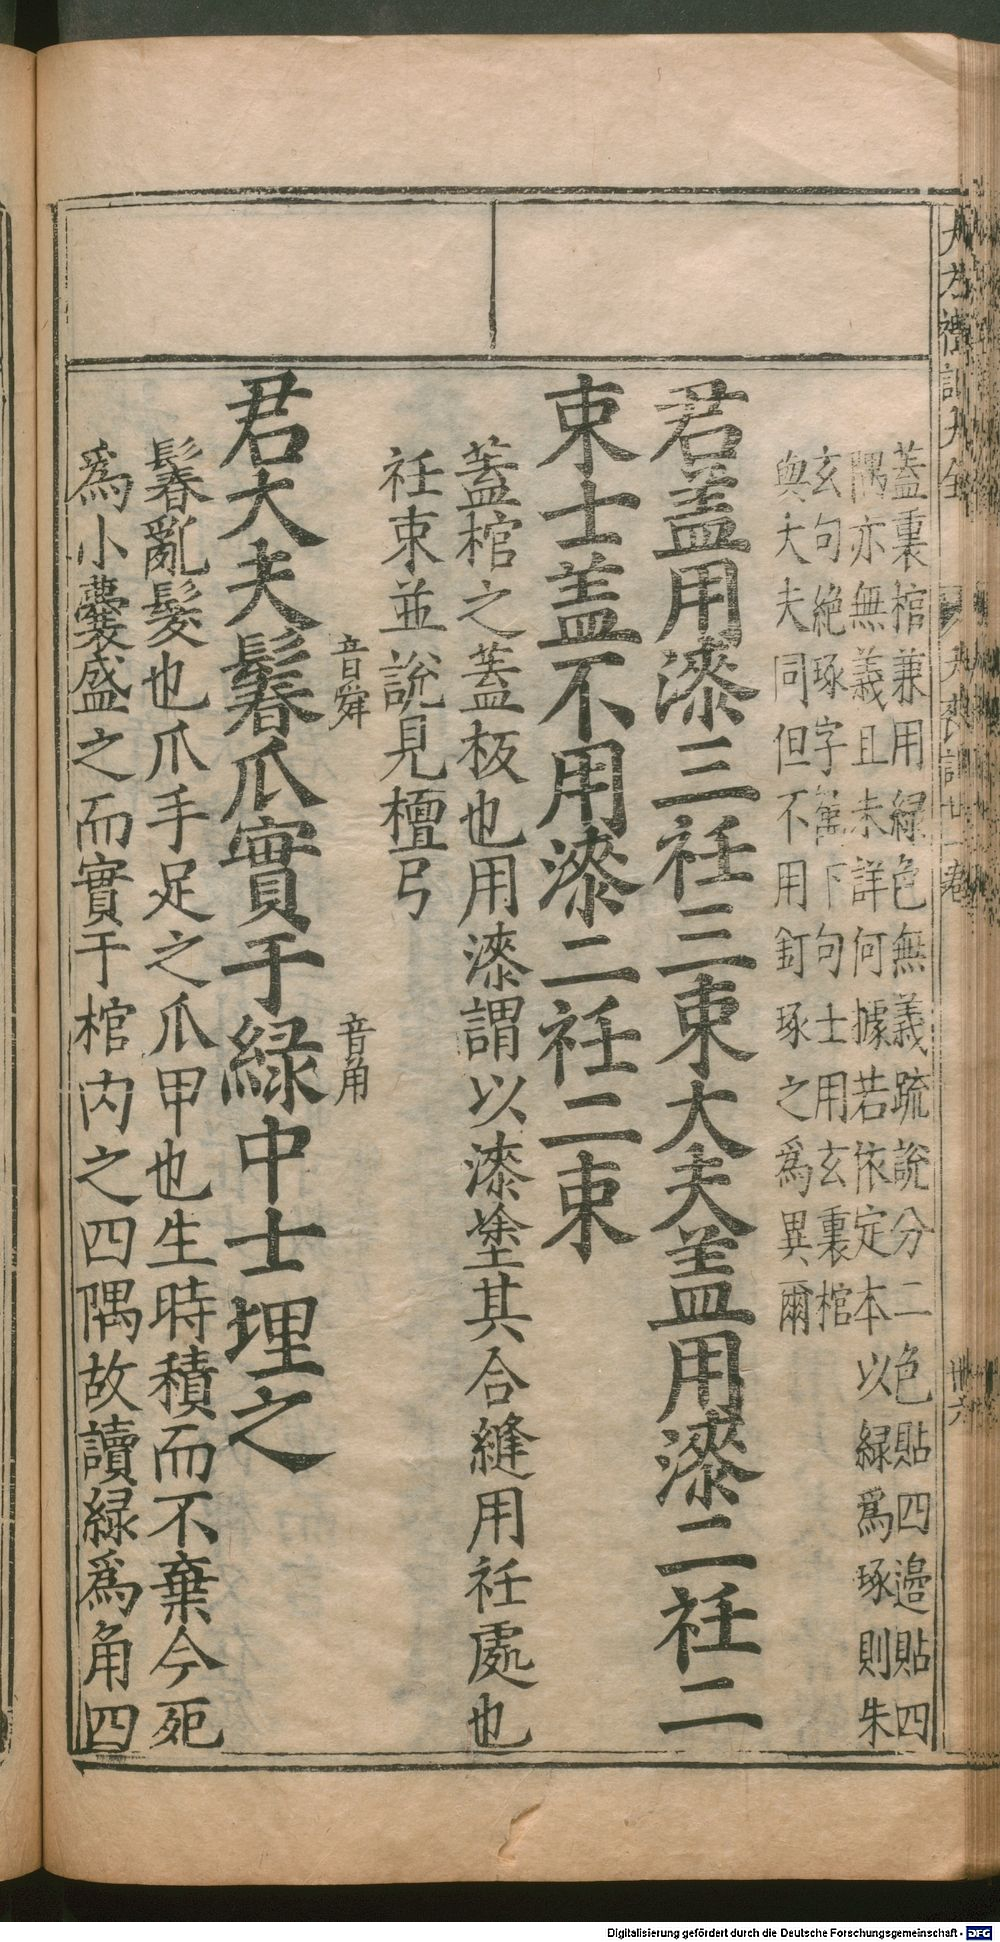 蓋裏棺兼用綠色無義疏說分二色貼四邉貼四
隅亦無義且未詳何據若依定本以綠爲琢則朱
玄句絶琢字屬下句士用玄裏棺
與大夫同但不用釘琢之爲異爾
君盖用漆三衽三束大夫盖用漆二衽二
束士盖不用漆二衽二束
蓋棺之蓋板也用漆謂以漆塗其合縫用衽處也
衽束並說見檀弓
音舜
音角
君大夫鬊爪實于綠中士埋之
鬊亂髮也爪手足之爪甲也生時積而不棄今死
爲小囊盛之而實于棺内之四隅故讀綠爲角四
Digitalisierung gefördert durch die Deutsche Forschungsgemeinschaft - DFG